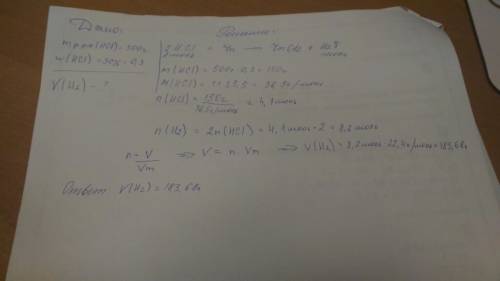 Дано:
Решение:
m р-ра (HCl) = 500г
w (HCl) = 30% = 0,3
V(H₂) - ?
2HCl + Zn → ZnCl₂ + H₂↑
m(HCl) = 500г · 0,3 = 150г
M(HCl) = 1+35,5 = 36,5г/моль
n(HCl) = 150г / 36,5г/моль = 4,1моль
n(H₂) = 2n(HCl) = 4,1моль · 2 = 8,2 моль
n = V / Vm ⇒ V = n · Vm ⇒ V(H₂) = 8,2 моль · 22,4л/моль = 183,68л
Ответ: V(H₂) = 183,68л